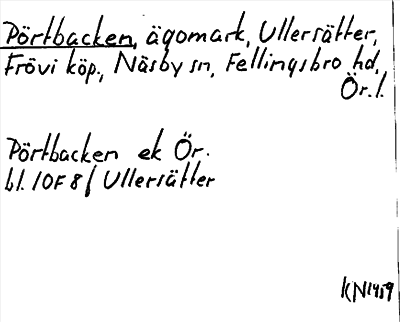 Pörtbacken, ägomark, Ullersätter,
Frövi köp., Näsby sn, Fellingsbro hd,
Ör. l.
Pörtbacken ek Ör.
bl. 10F 8f Ullersätter
KN 1959